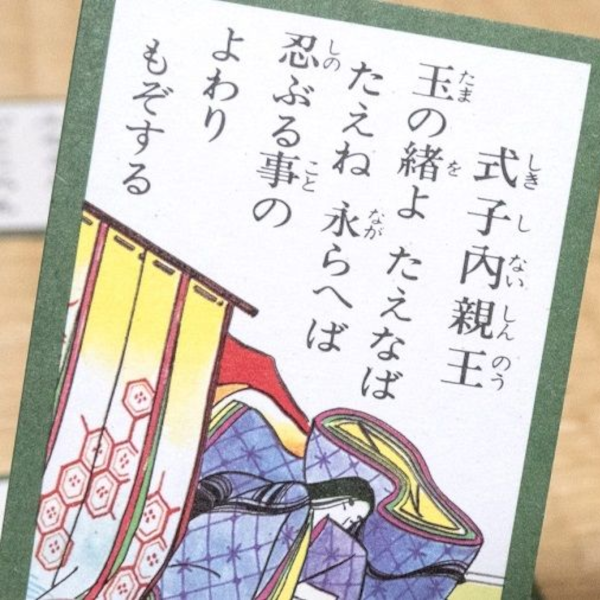 式子内親王
玉の緒よ たえなば
たえね 永らへば
忍ぶる事の
よわり
もぞする